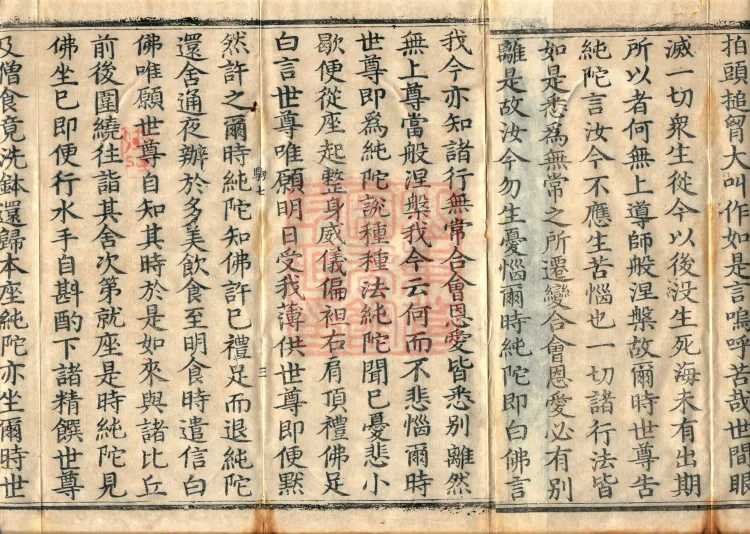 拍頭搥胷大叫作如是言嗚呼苦哉世間眼
滅一切衆生從今以後没生死海未有出期
所以者何無上導師般涅槃故爾時世尊告
純陀言汝今不應生苦惱也一切諸行法皆
如是悉爲無常之所遷變合會恩愛必有別
離是故汝今勿生憂惱爾時純陀即白佛言
我今亦知諸行無常合會恩愛皆悉別離然
無上尊當般涅槃我今云何而不悲惱爾時
世尊即爲純陀說種種法純陀聞已憂悲小
歇便從座起整身威儀偏袒右肩頂禮佛足
白言世尊唯願明日受我薄供世尊即便默
七
三
然許之爾時純陀知佛許已禮足而退純陀
還舍通夜辦於多美飲食至明食時遣信白
佛唯願世尊自知其時於是如來與諸比丘
前後圍繞往詣其舍次第就座是時純陀見
佛坐已即便行水手自斟酌下諸精饌世尊
及僧食竟洗鉢還歸本座純陀亦坐爾時世